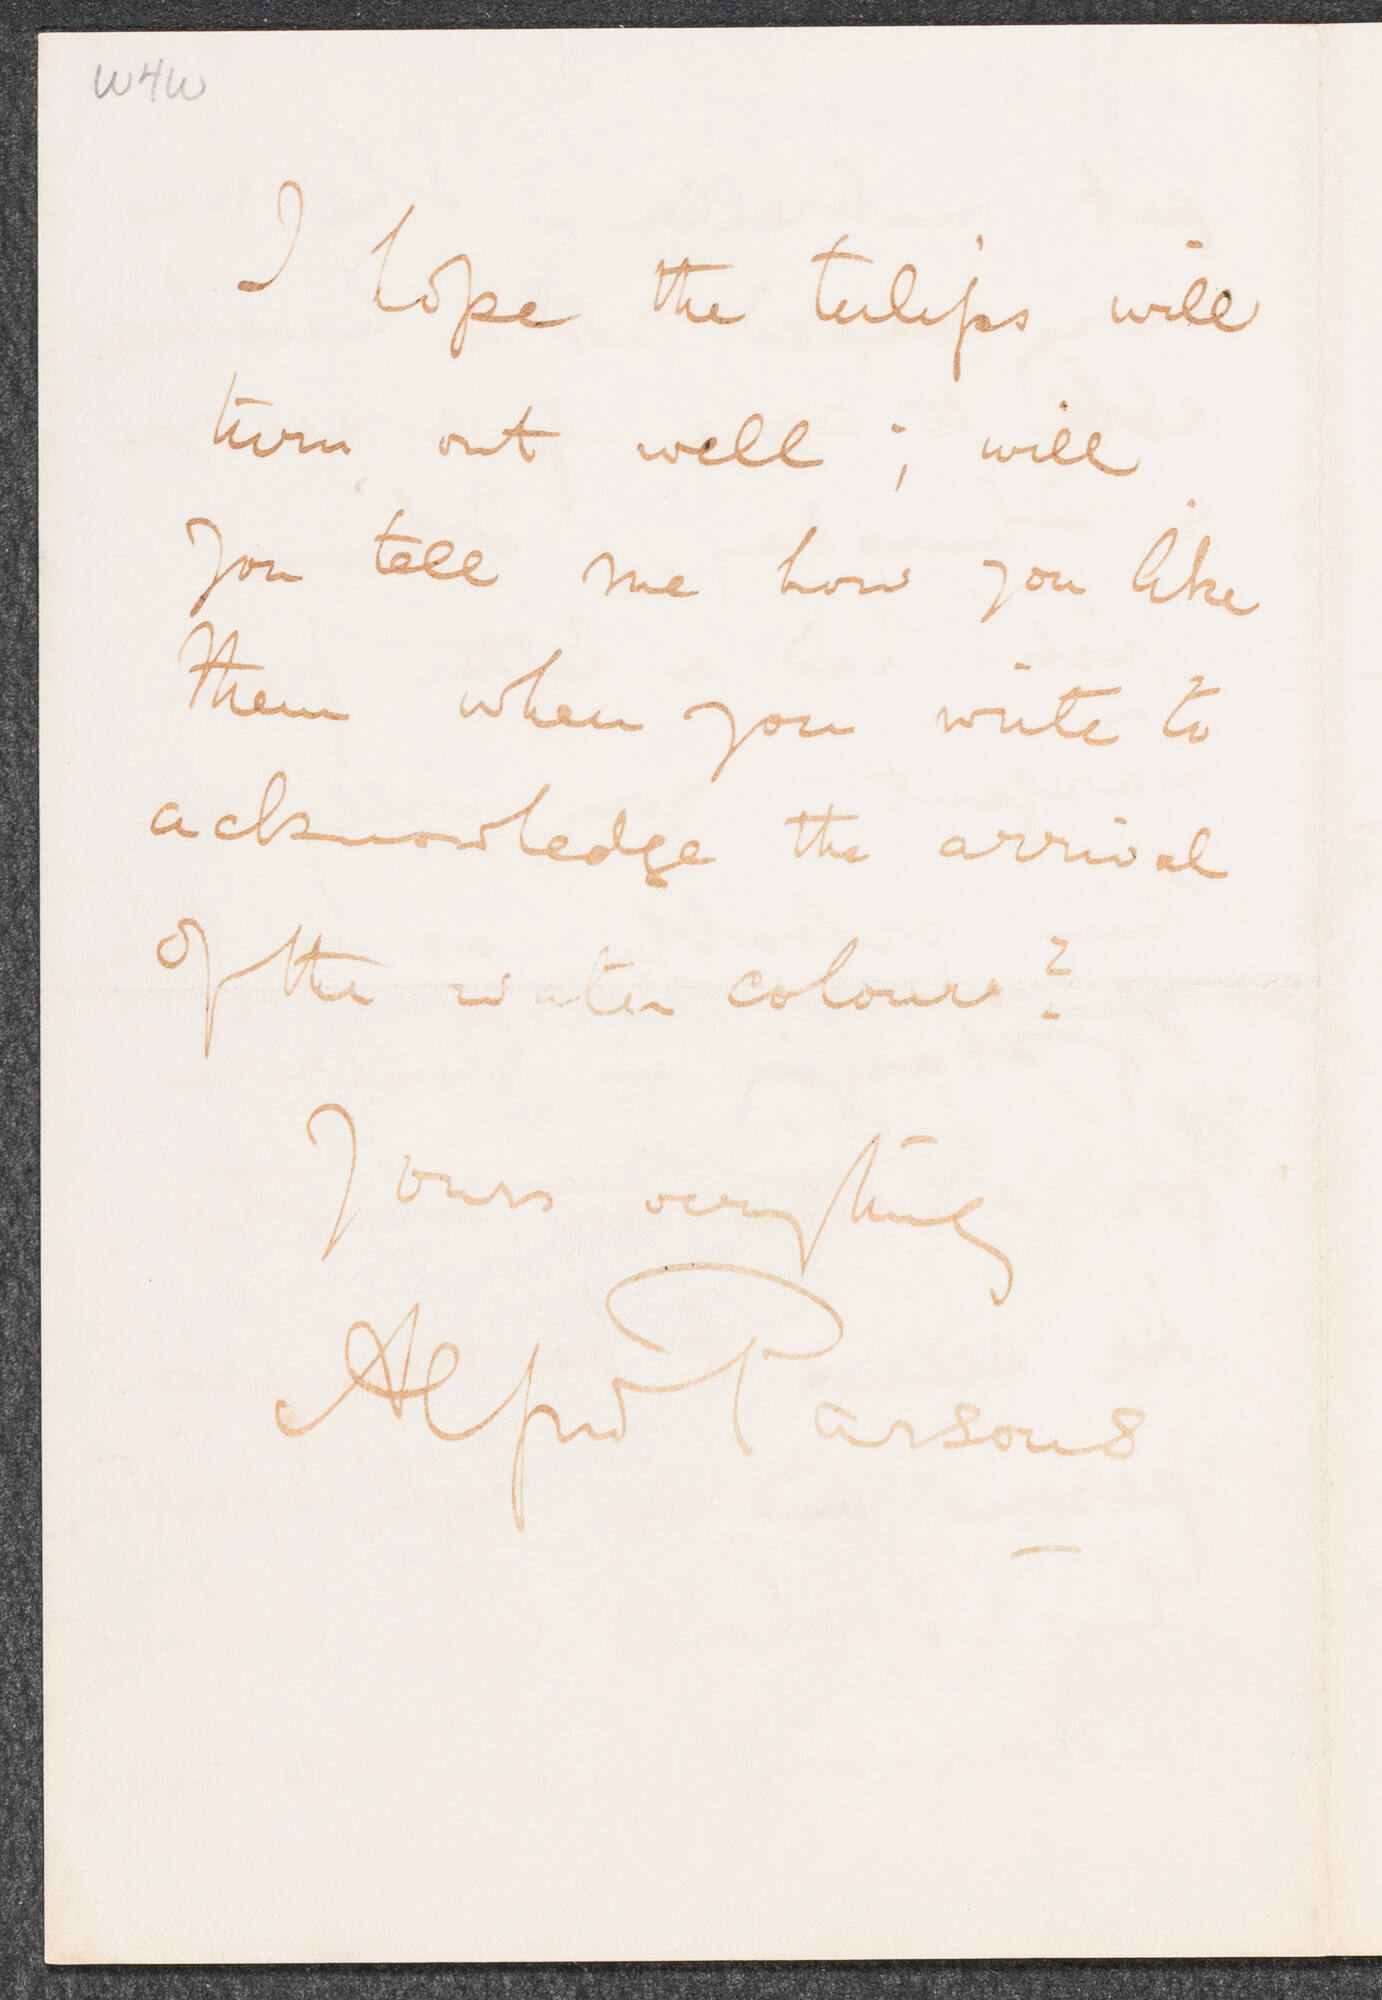 W4W
I hope the tulips will
turn out well; will
you tell me how you like
them when you write to
acknowledge the arrival
of the water colours?
Yours
Alfred Parsons